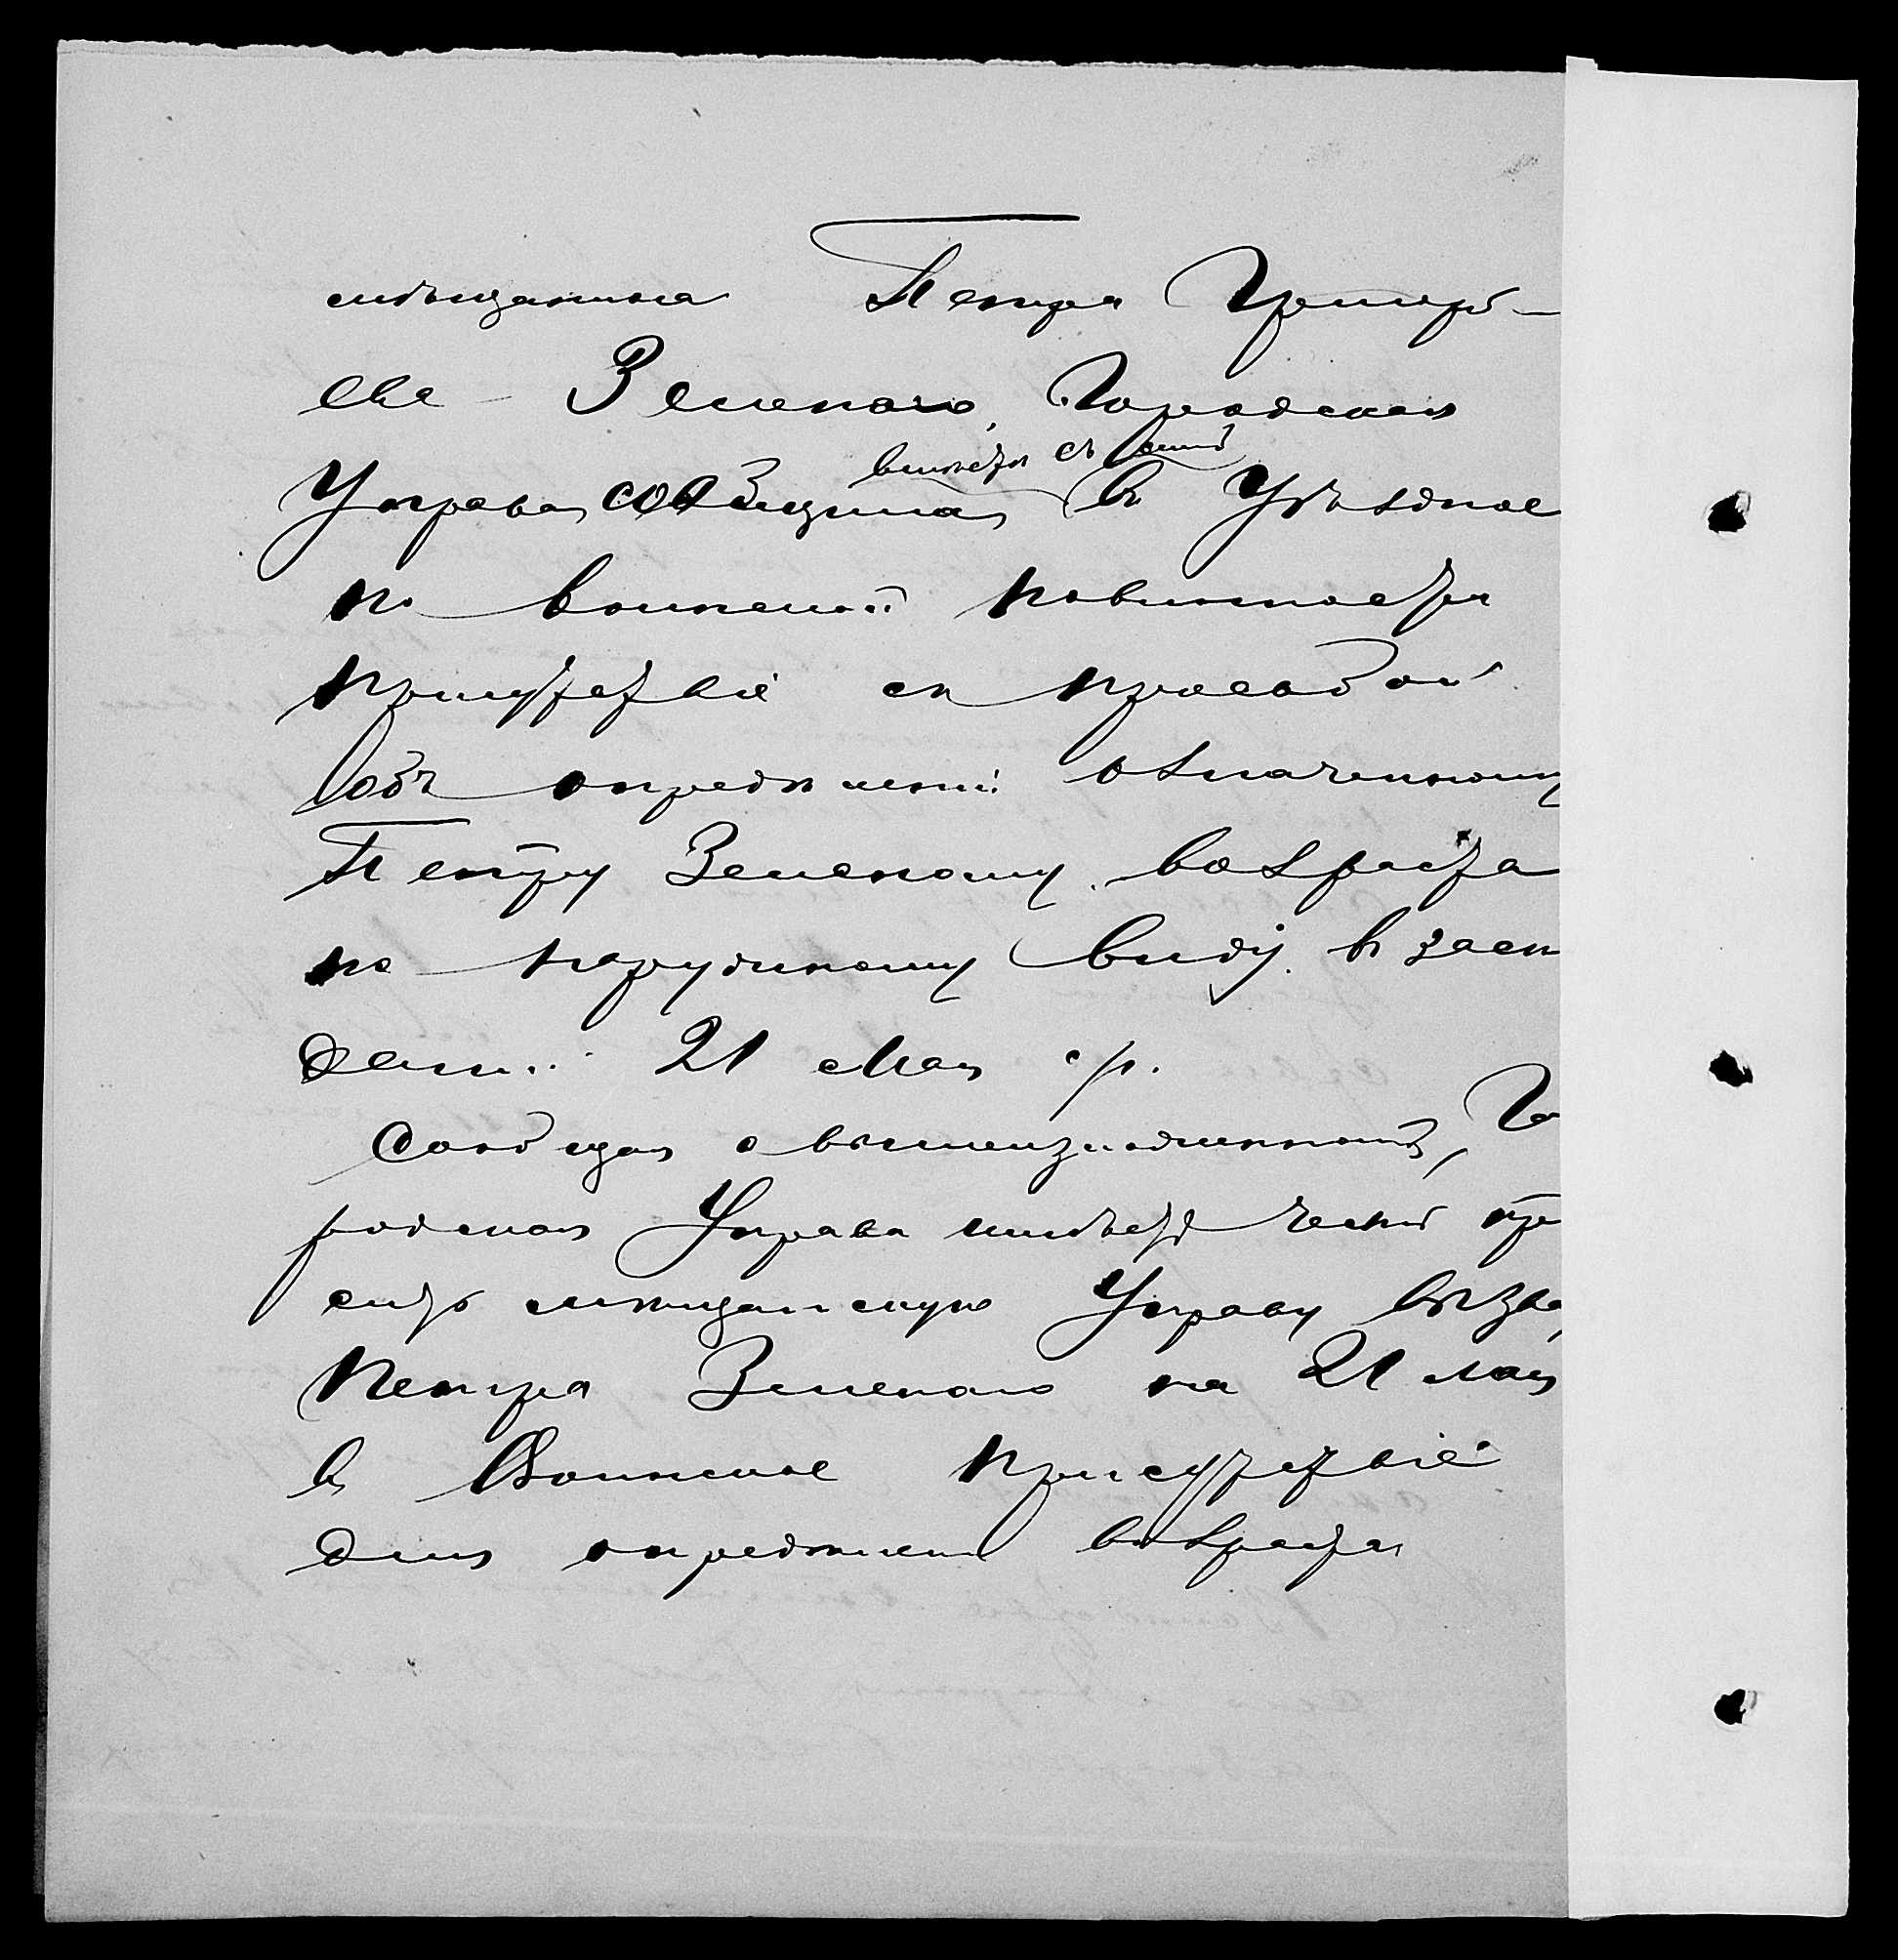 мѣщанина Петра Григорь-
ева Зеленаго, Городская
вмѣстѣ съ симъ
Управа сообщила въ Уѣздное
по воинской повинности
присутствіе съ просьбой
объ опредѣленіи означенному
Петру Зеленому возраста
по наружному виду въ засѣ
даніи 21 Мая с/г.
Сообщая о вышеизложенномъ, Го
родская Управа имѣетъ честь про
сить мѣщанскую Управу вызва
Петра Зеленаго на 21 мая
въ Воинское присутствіе
для опредѣленія возраста